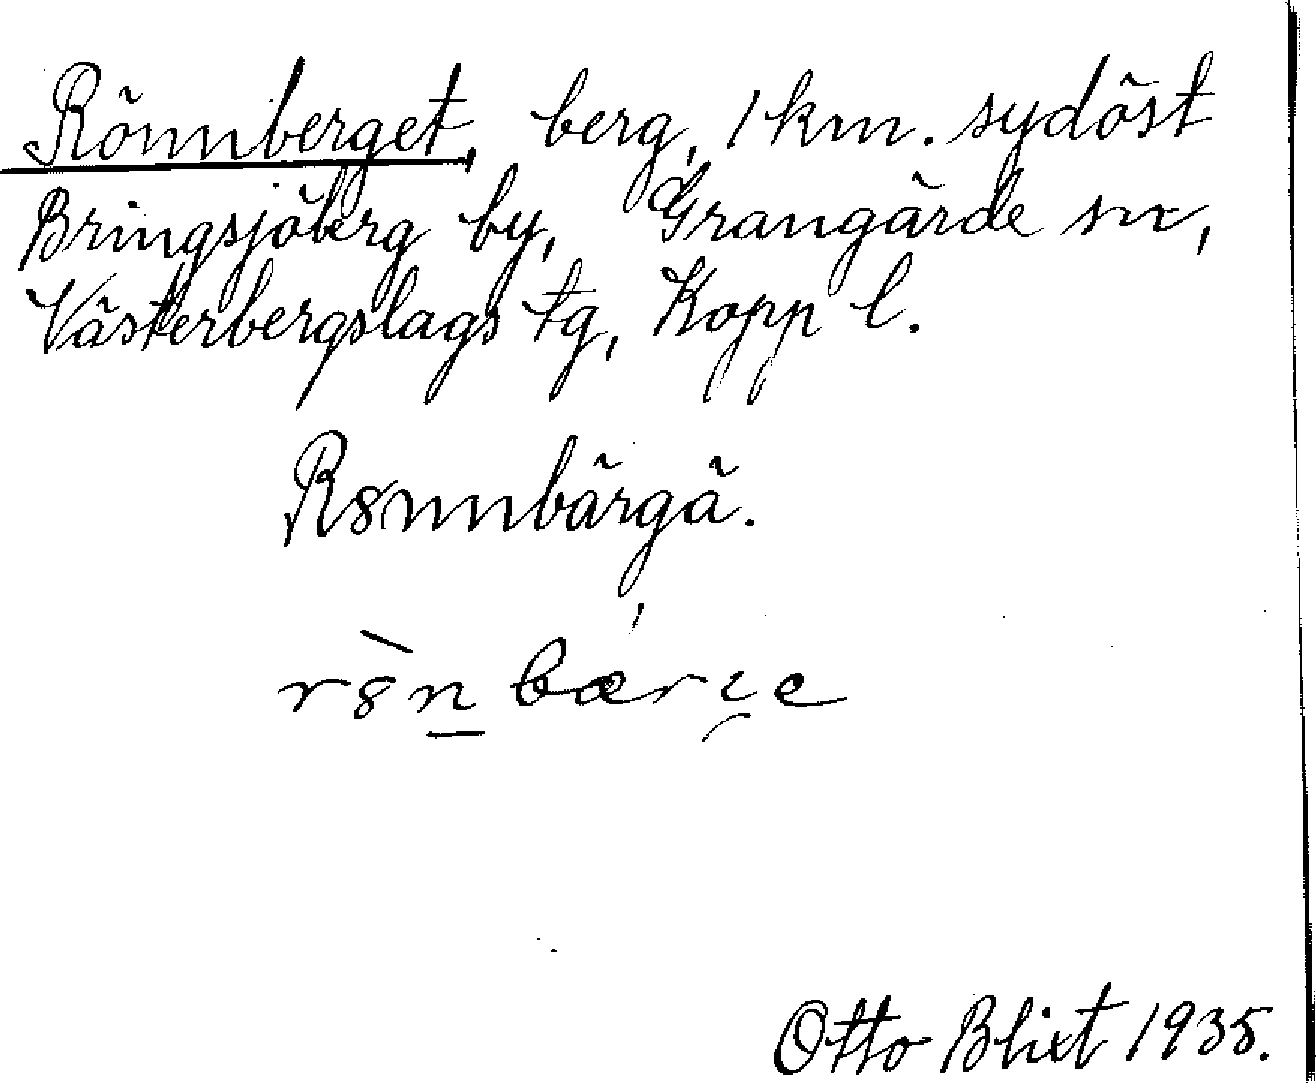 Rönnberget, berg, 1 km. sydöst
Bringsjöberg by, Grangärde sn,
Västerbergslags tg, Kopp l.
R8nnbärgä.
Otto Blixt 1935.